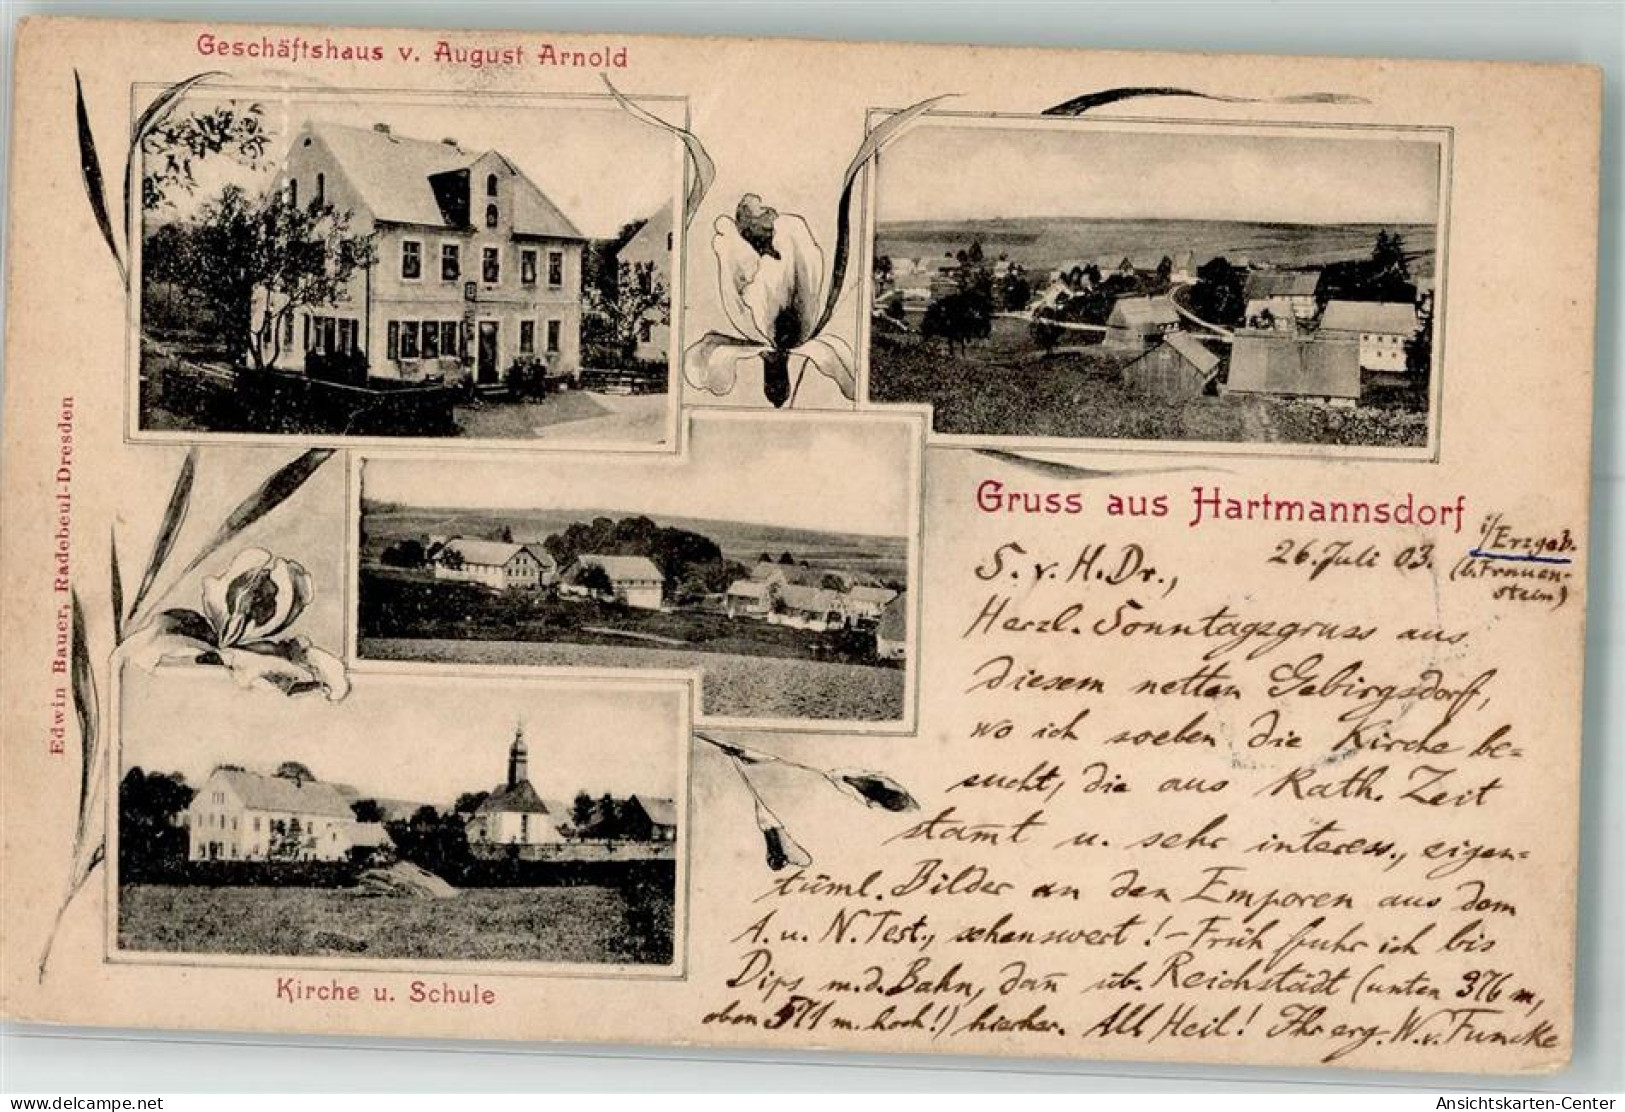 Geschäftshaus v. August Arnold
Edwin Bauer, Radebeul-Dresden
Gruss aus Hartmannsdorf
i/Erzgeb.
(b. Frauen-
stein)
26. Juli 03.
S. v. H. Dr.,
Herzl. Sonntagsgruss aus
diesem netten Gebirgsdorf,
wo ich soeben die Kirche be=
sucht, die aus Kath. Zeit
stam̄t u. sehr interess., eigen=
tüml. Bilder an den Emporen aus dem
A. u. N. Test., sehenswert! – Früh fuhr ich bis
Dips m. d. Bahn, dan̄ üb. Reichstädt (unten 376 m,
oben 571 m. hoch!) hierher. All Heil! Ihr erg. W. v. Funcke
Kirche u. Schule
www.delcampe.net
Ansichtskarten-Center